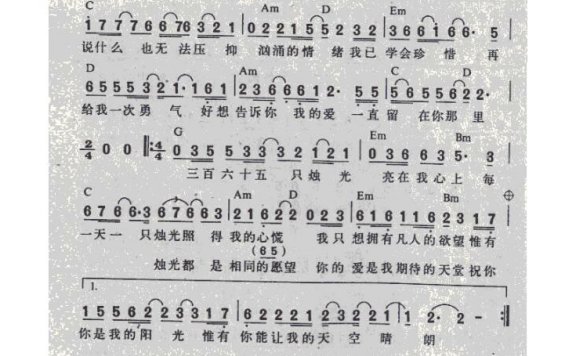 C Am D Em
1 7 7 7 7 6 6 7 6 3 2 1 | 0 2 2 1 5 5 2 3 2 | 3 6 6 1 6 6 · 5 |
说什么 也无法压 抑 汹涌的情 绪我已 学会珍 惜 再
D Am C D
6 5 5 5 3 2 1 · 1 6 1 | 2 3 6 6 6 1 2 · 5 5 | 5 6 5 5 6 2 2 · |
给我一次勇 气 好想 告诉你 我的爱 一直 留 在你那 里
G Em Bm
2/4 0 0 ‖: 4/4 0 3 5 5 3 3 2 1 2 1 | 0 3 6 6 3 5 · 3 |
三百六十五 只烛 光 亮在我心上 每
C Am D Em Bm
6 7 6 6 · 3 6 7 6 6 3 | 2 1 6 2 2 0 2 3 | 6 1 6 1 1 6 2 3 1 7 |
一天一 只烛光照 得 我的心慌 我只 想拥有凡人的欲望惟有
(6 5)
烛光都 是 相同的愿望 你的 爱是我期待的天堂祝你
1.
1 5 5 6 2 2 3 3 1 7 | 6 2 2 2 2 1 2 3 2 2 1 | 1 2 · 2 - :‖
你是我的 阳 光 惟有 你能让我的 天 空 晴 朗